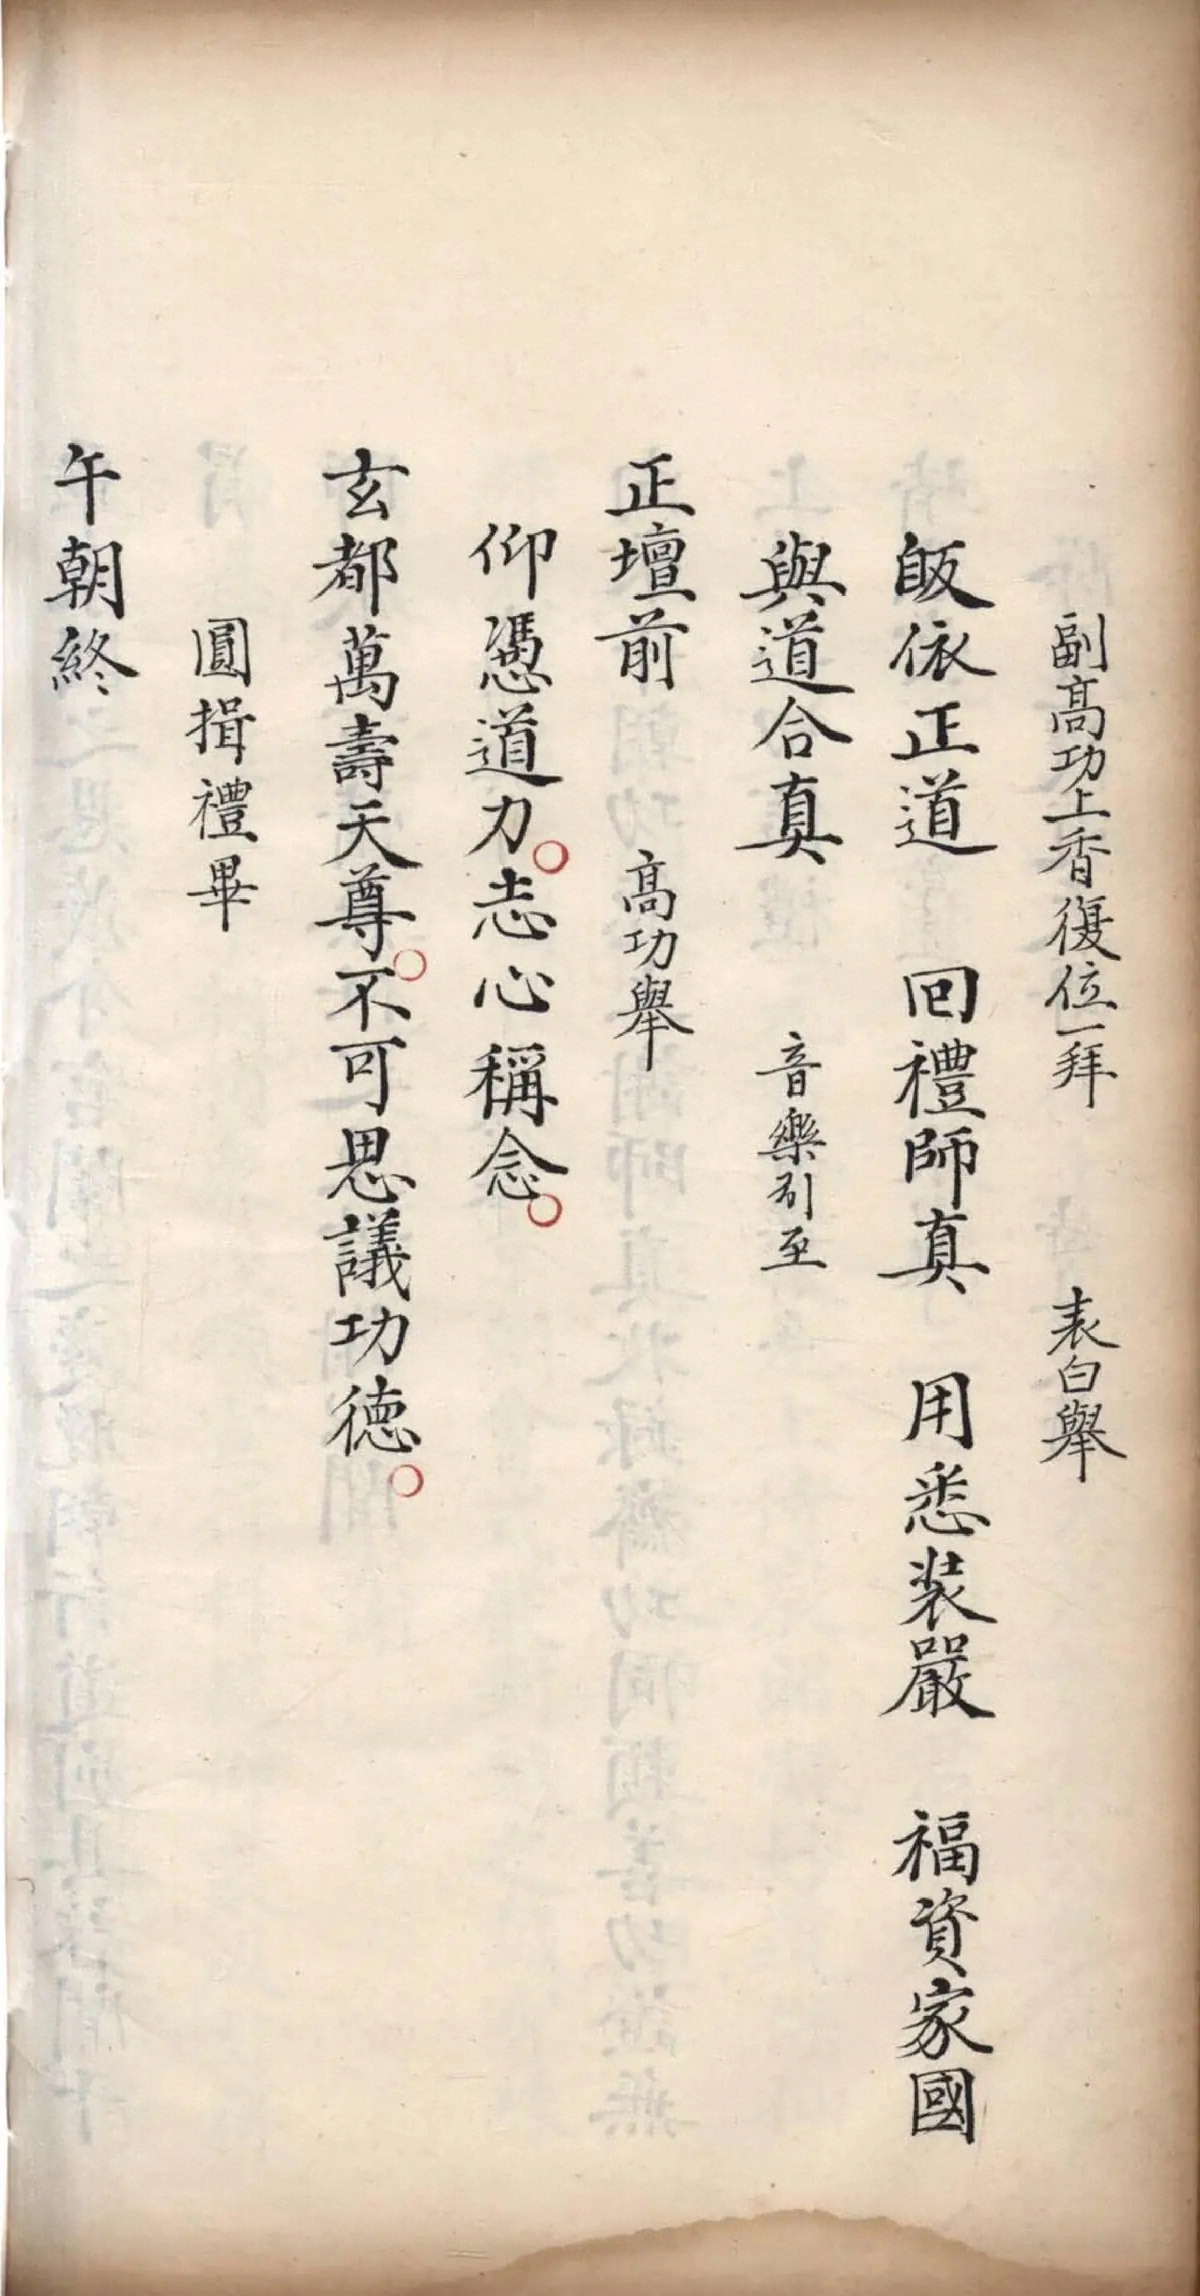 副高功上香復位一拜 表白舉
皈依正道 回禮師真 用悉裝嚴 福資家國
與道合真 音樂引至
正壇前 高功舉
仰憑道力○志心稱念○
玄都萬壽天尊○不可思議功德○
圓揖禮畢
午朝終